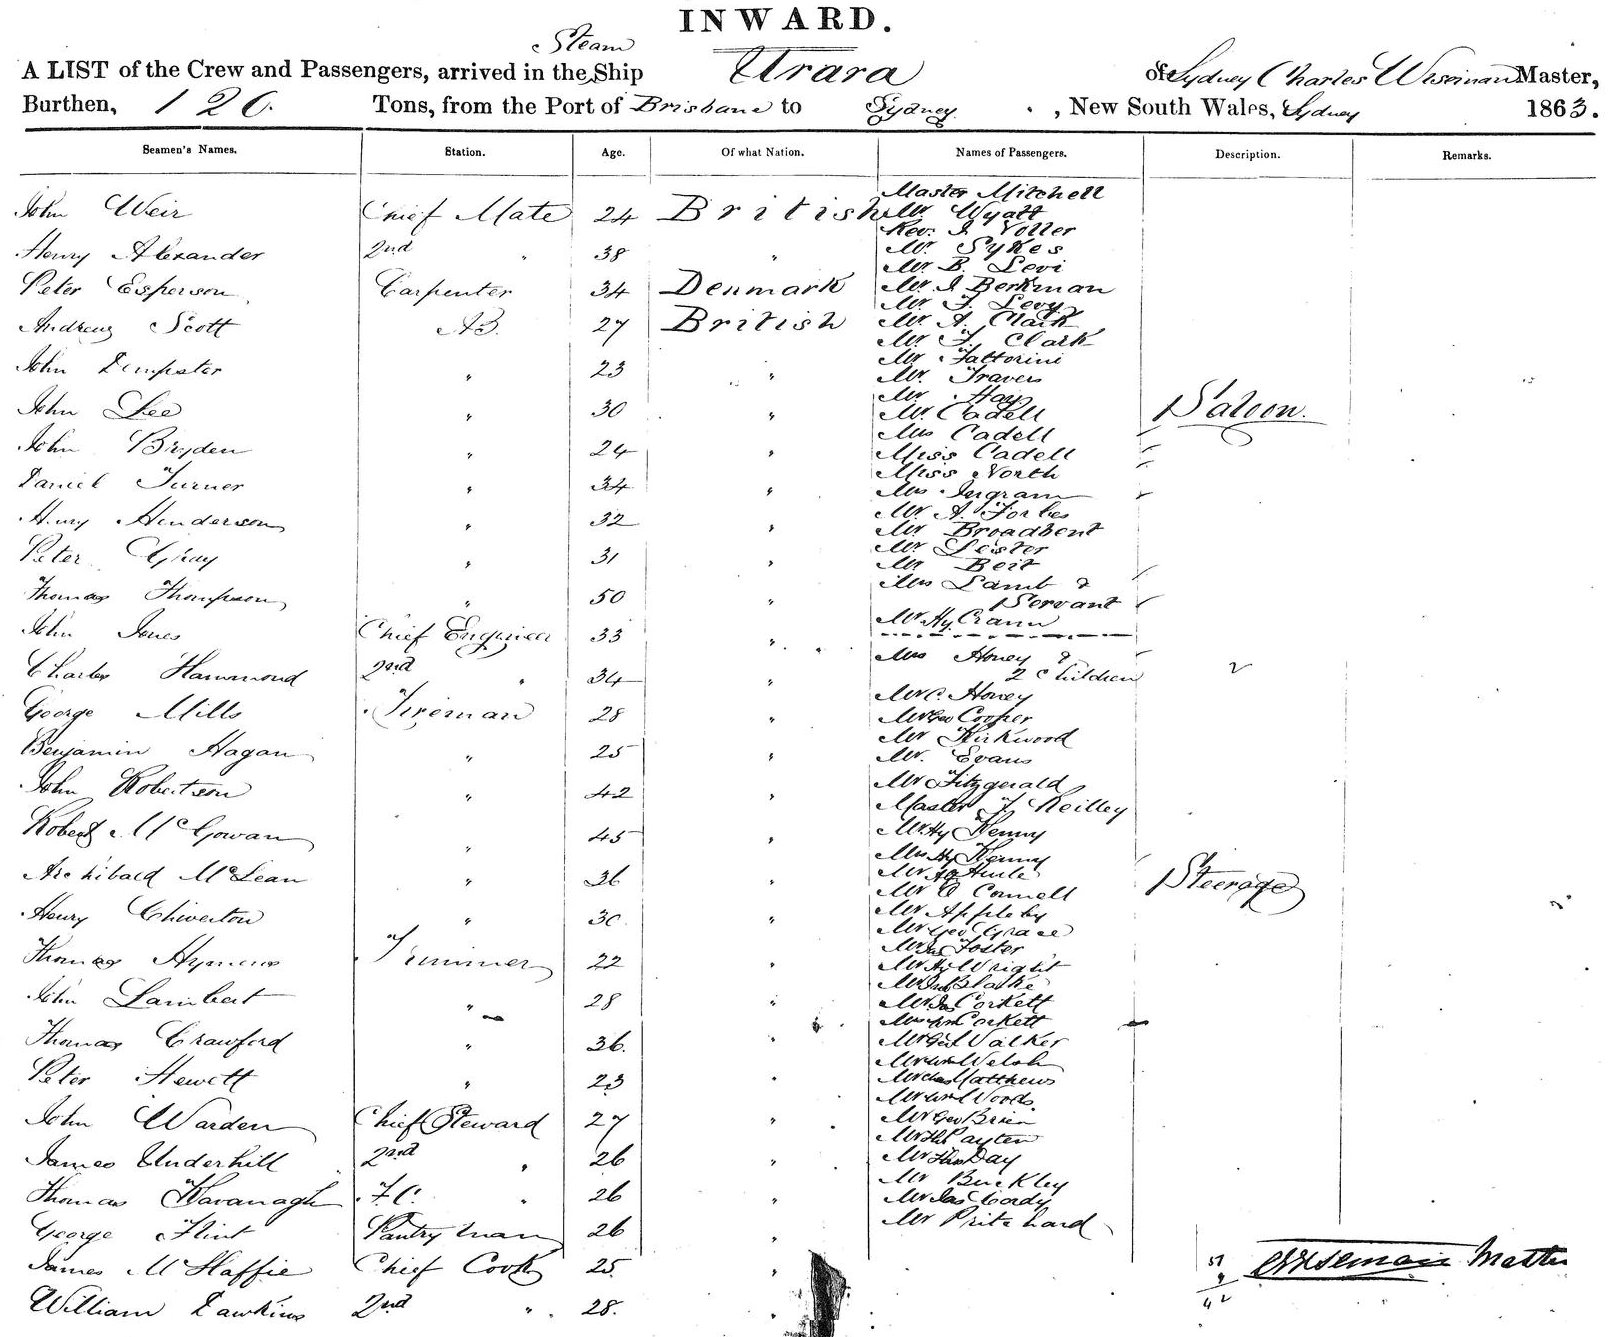 INWARD.
Steam
A LIST of the Crew and Passengers, arrived in the Ship Urara of Sydney Charles Wiseman Master,
Burthen, 120. Tons, from the Port of Brisbane to Sydney , New South Wales, Sydney 1863.
Seamen's Names. Station. Age. Of what Nation. Names of Passengers. Description. Remarks.
Master Mitchell
John Weir Chief Mate 24 British Mr Wyatt
Rev. J Voller
Henry Alexander 2nd " 38 " Mr Sykes
Mr B. Levi
Peter Esperson Carpenter 34 Denmark Mr J Berkman
Mr F. Levy
Andrew Scott AB. 27 British Mr A. Clark
Mr F. Clark
Mr Fattorini
John Dempster " 23 " Mr. Travers
Mr Hay
John Lee " 30 " Mr Cadell Saloon.
Mrs Cadell
John Bryden " 24 " Miss Cadell
Miss North
Daniel Turner " 34 " Mrs Ingram
Mr A. Forbes
Henry Henderson " 32 " Mr Broadbent
Mr Leister
Peter Gray " 31 " Mr Beit
Mrs Lamb &
Thomas Thompson " 50 " Servant
Mr Hy Crann
John Jones Chief Engineer 33 "
Mrs Honey &
Charles Hammond 2nd " 34 " 2 children 2
Mr C Honey
George Mills Fireman 28 " Mr Geo Cooper
Mr Kirkwood
Benjamin Hagan " 25 " Mr. Evans
John Robertson " 42 " Mr Fitzgerald
Master F. Reilley
Robert McGowan " 45 " Mr Hy Kenny
Mrs Hy Kenny
Archibald McLean " 36 " Mr Steerage
Mr O Connell
Henry Chiverton " 30 " Mr Appleby
Mr Geo Grace
Thomas Hymens Trimmer 22 " Mr Jas Foster
Mr Hy Wright
Mr Blake
John Lambert " 28 " Mr Jas Corkett
Mrs Corkett
Thomas Crawford " 36. " Mr Walker
Mr Wm Welsh
Peter Hewett " 23 " Mr Chas Matthews
Mr Wm Woods
John Warden Chief Steward 27 " Mr Geo Brien
Mr Payten
James Underhill 2nd " 26 " Mr Thos Day
Mr Buckley
Thomas Kavanagh F.C. " 26 " Mr Jas Cordy
George Flint Pantry man 26 " Mr Pritchard
James McHaffie Chief Cook 25. " 51 CWiseman Master
9
William Dawkins 2nd " 28. " 42